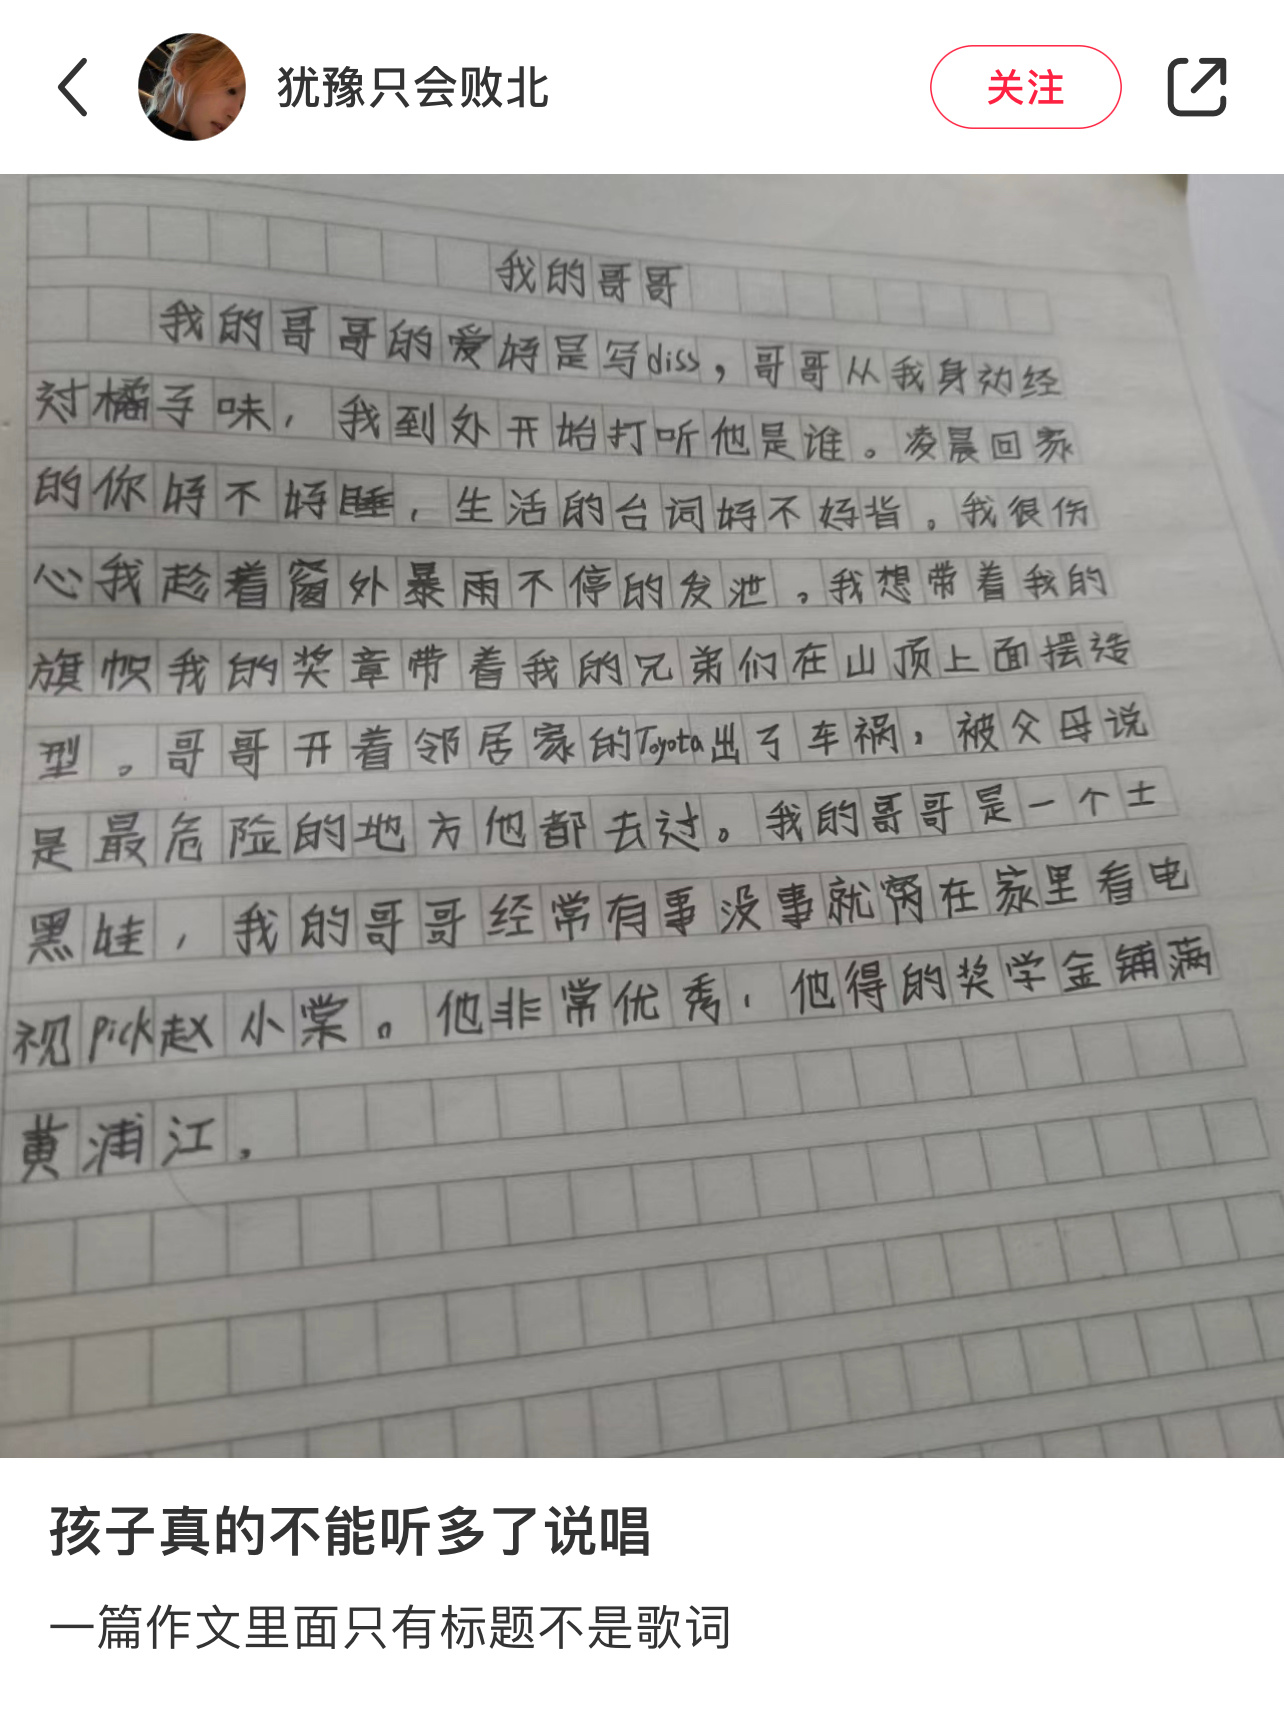 犹豫只会败北
关注
我的哥哥
我的哥哥的爱好是写diss，哥哥从我身边经
过橘子味，我到处开始打听他是谁。凌晨回家
的你好不好睡，生活的台词好不好背。我很伤
心我趁着窗外暴雨不停的发泄。我想带着我的
旗帜我的奖章带着我的兄弟们在山顶上面摆造
型。哥哥开着邻居家的Toyota出了车祸，被父母说
是最危险的地方他都去过。我的哥哥是一个土
黑娃，我的哥哥经常有事没事就窝在家里看电
视pick赵小棠。他非常优秀，他得的奖学金铺满
黄浦江。
孩子真的不能听多了说唱
一篇作文里面只有标题不是歌词